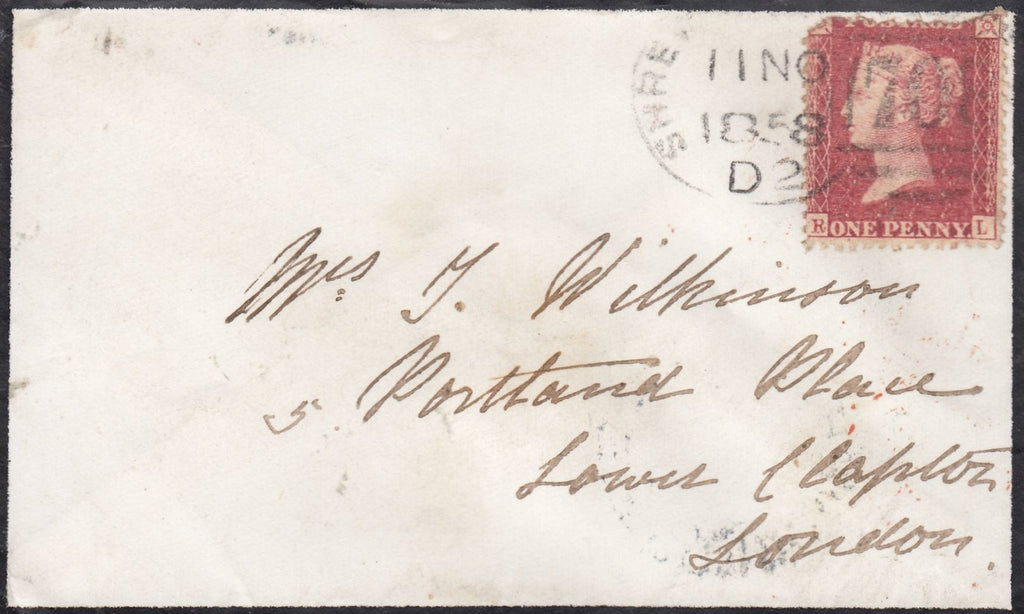 SHRE
11 NO
1858
D2
701
R ONE PENNY. L
Mrs J. Wilkinson
5. Portland Place
Lower Clapton
London.